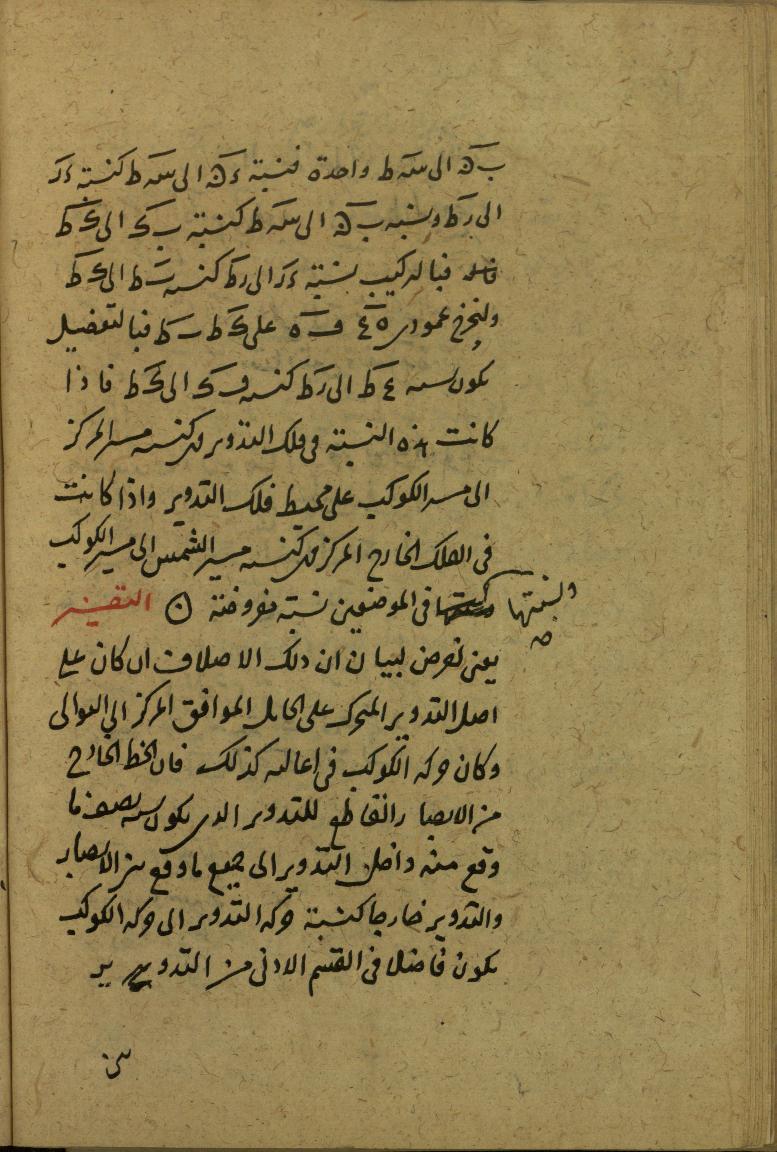 ب ه الى سه ط واحدة فنسبة ءه الى سه ط كنسبة ءر
الى رط ونسبه ب ه الى سه ط كنسبة ب ك الى ك ط
فبالتركيب نسبة ءر الى رط كنسبه ط الى ك ط
ولنخرج عمودى على ك ط فبالتفضيل
يكون نسبه ع ط الى رط كنسه ف ك الى ك ط فاذا
كانت هذه النسبة فى فلك التدوير فهى كنسبه مسير المركز
الى مسير الكوكب على محيط فلك التدوير واذا كانت
فى الفلك الخارج المركز فهى كنسبه مسير الشمس الى مسير الكوكب
والنسبة فى الموضعين نسبة مفروضة التفسير
يعنى نعرض لبيان ان ذلك الاختلاف ان كان على
اصل التدوير المتحرك على الحامل الموافق المركز الى التوالى
وكان حركه الكوكب فى اعاليه كذلك فان الخط الخارج
من الابصار القاطع للتدوير الذى يكون نسبة نصف ما
وقع منه داخل التدوير الى جميع ما وقع بين الابصار
والتدوير خارجا كنسبة حركه التدوير الى حركه الكوكب
يكون فاصلا فى القسم الادنى من التدوير بين